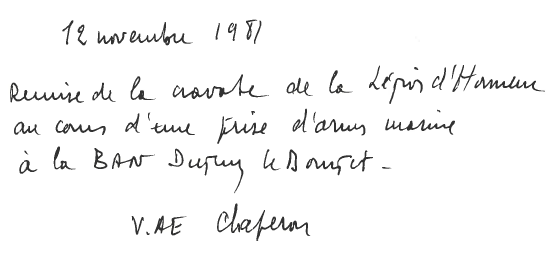 12 novembre 1981
Remise de la cravate de la Légion d'Honneur
au cours d'une prise d'armes marine
à la BAN Dugny le Bourget -
V.AE Chaperon